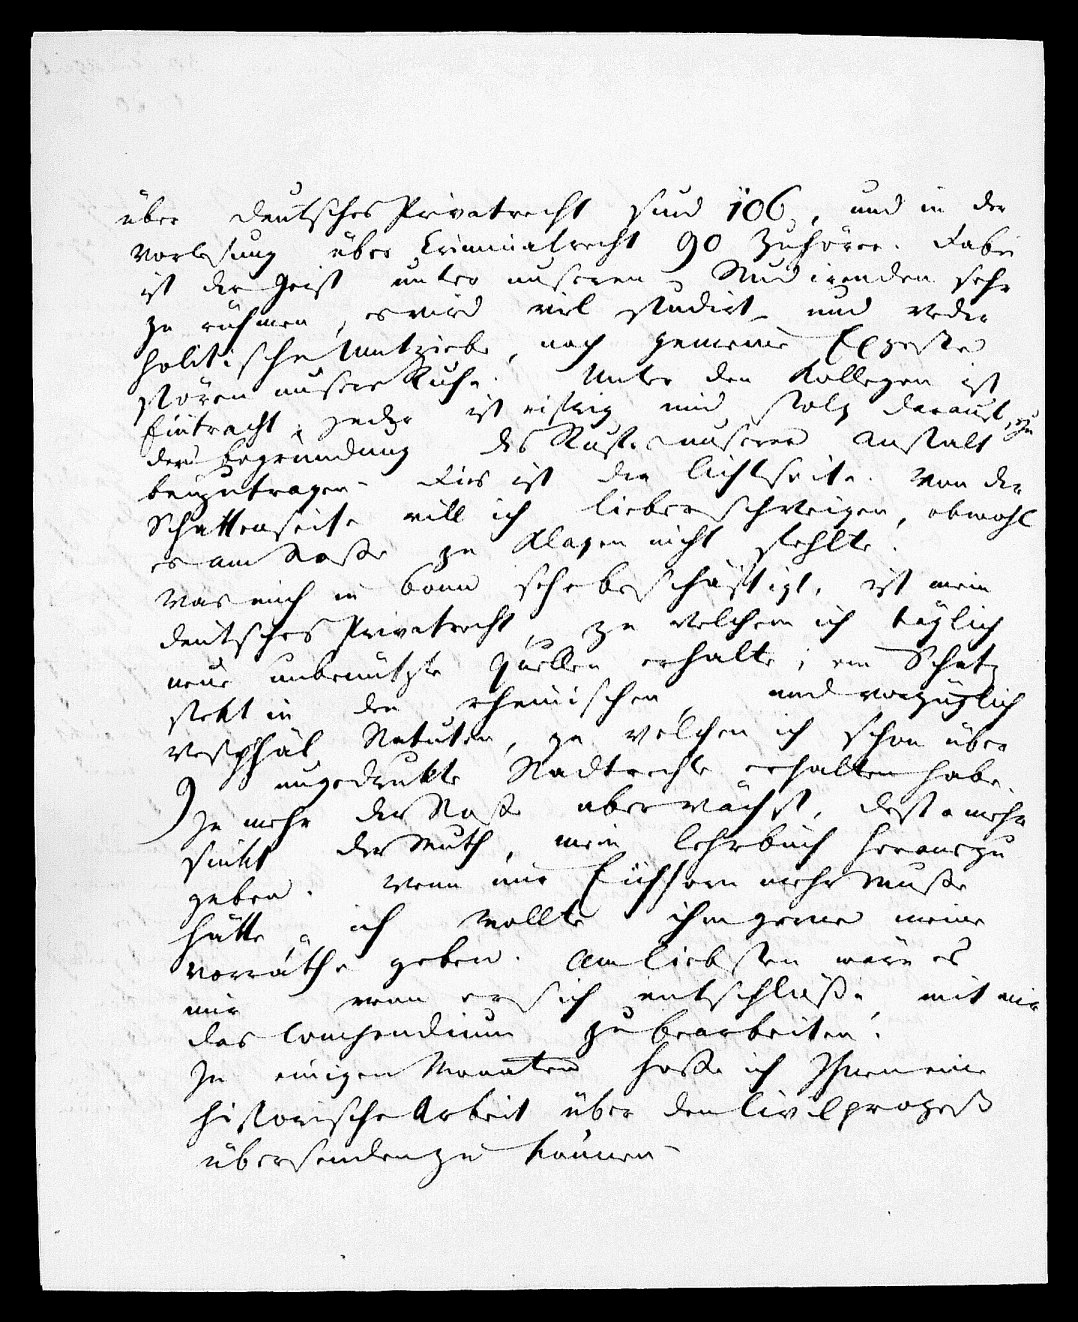 über deutsches Privatrecht sind 106, und in der
Vorlesung über Criminalrecht 90 Zuhörer. Dabei
ist der Geist unter unseren Studirenden sehr
zu rühmen, es wird viel studirt, und weder
politische Umtriebe, noch gemeine Excesse
stören unsere Ruhe. Unter den Kollegen ist
Eintracht; jeder ist eifrig und stolz darauf, zu
der Begründung des Rufes unserer Anstalt
beyzutragen. Dies ist die Lichtseite. Von der
Schattenseite will ich lieber schweigen, obwohl
es am Stoffe zu Klagen nicht fehlte.
Was mich in Bonn sehr beschäftigt, ist mein
deutsches Privatrecht, zu welchem ich täglich
neue unbenützte Quellen erhalte; ein Schatz
stekt in den rheinischen, und vorzüglich
westphäl Statuten, zu welchen ich schon über
9 ungedrukte Stadtrechte erhalten habe.
Je mehr der Stoff aber wächst, desto mehr
sinkt der Muth, mein Lehrbuch herauszu
geben. Wenn nur Eichhorn mehr Muße
hätte, ich wollte ihm gerne meine
Vorräthe geben. Am liebsten wäre es
mir wenn er sich entschlösse mit mir
das Compendium zu bearbeiten.
In einigen Monaten hoffe ich Ihnen eine
historische Arbeit über den Civilprozeß
übersenden zu können